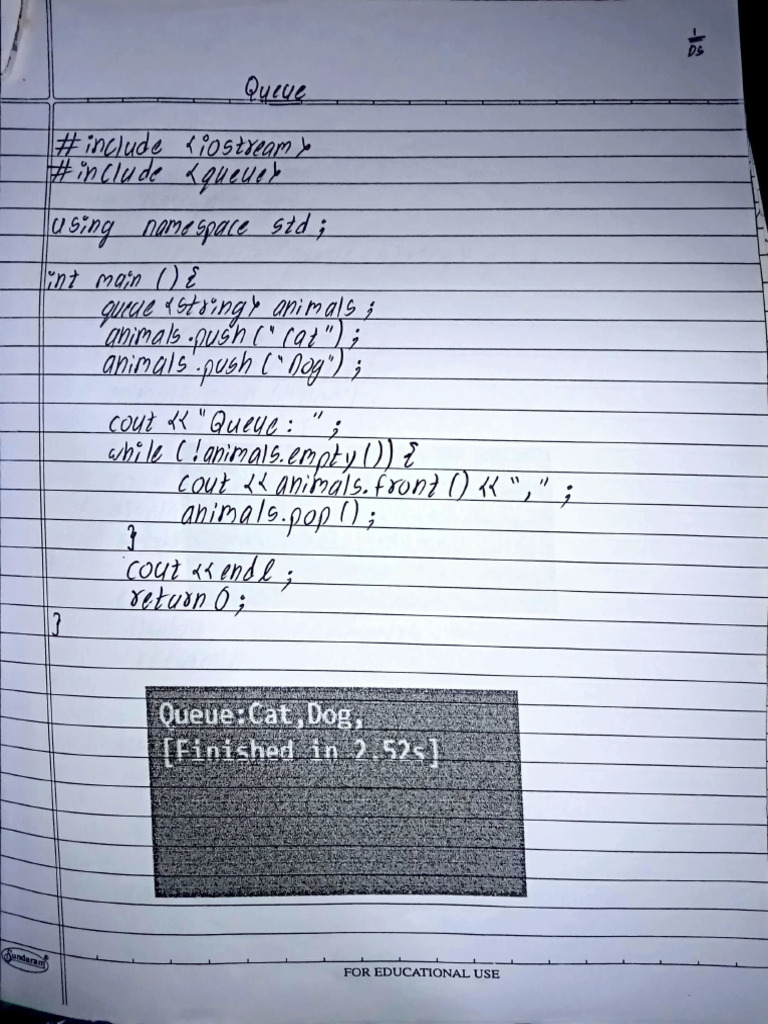 1
DS
Queue
#include <iostream>
#include <queue>
using namespace std;
int main () {
queue <string> animals;
animals.push ("Cat");
animals.push ("Dog");
cout << "Queue: ";
while (!animals.empty()) {
cout << animals.front () << ",";
animals.pop ();
}
cout << endl;
return 0;
}
Queue:Cat,Dog,
[Finished in 2.52s]
Sundaram®
FOR EDUCATIONAL USE